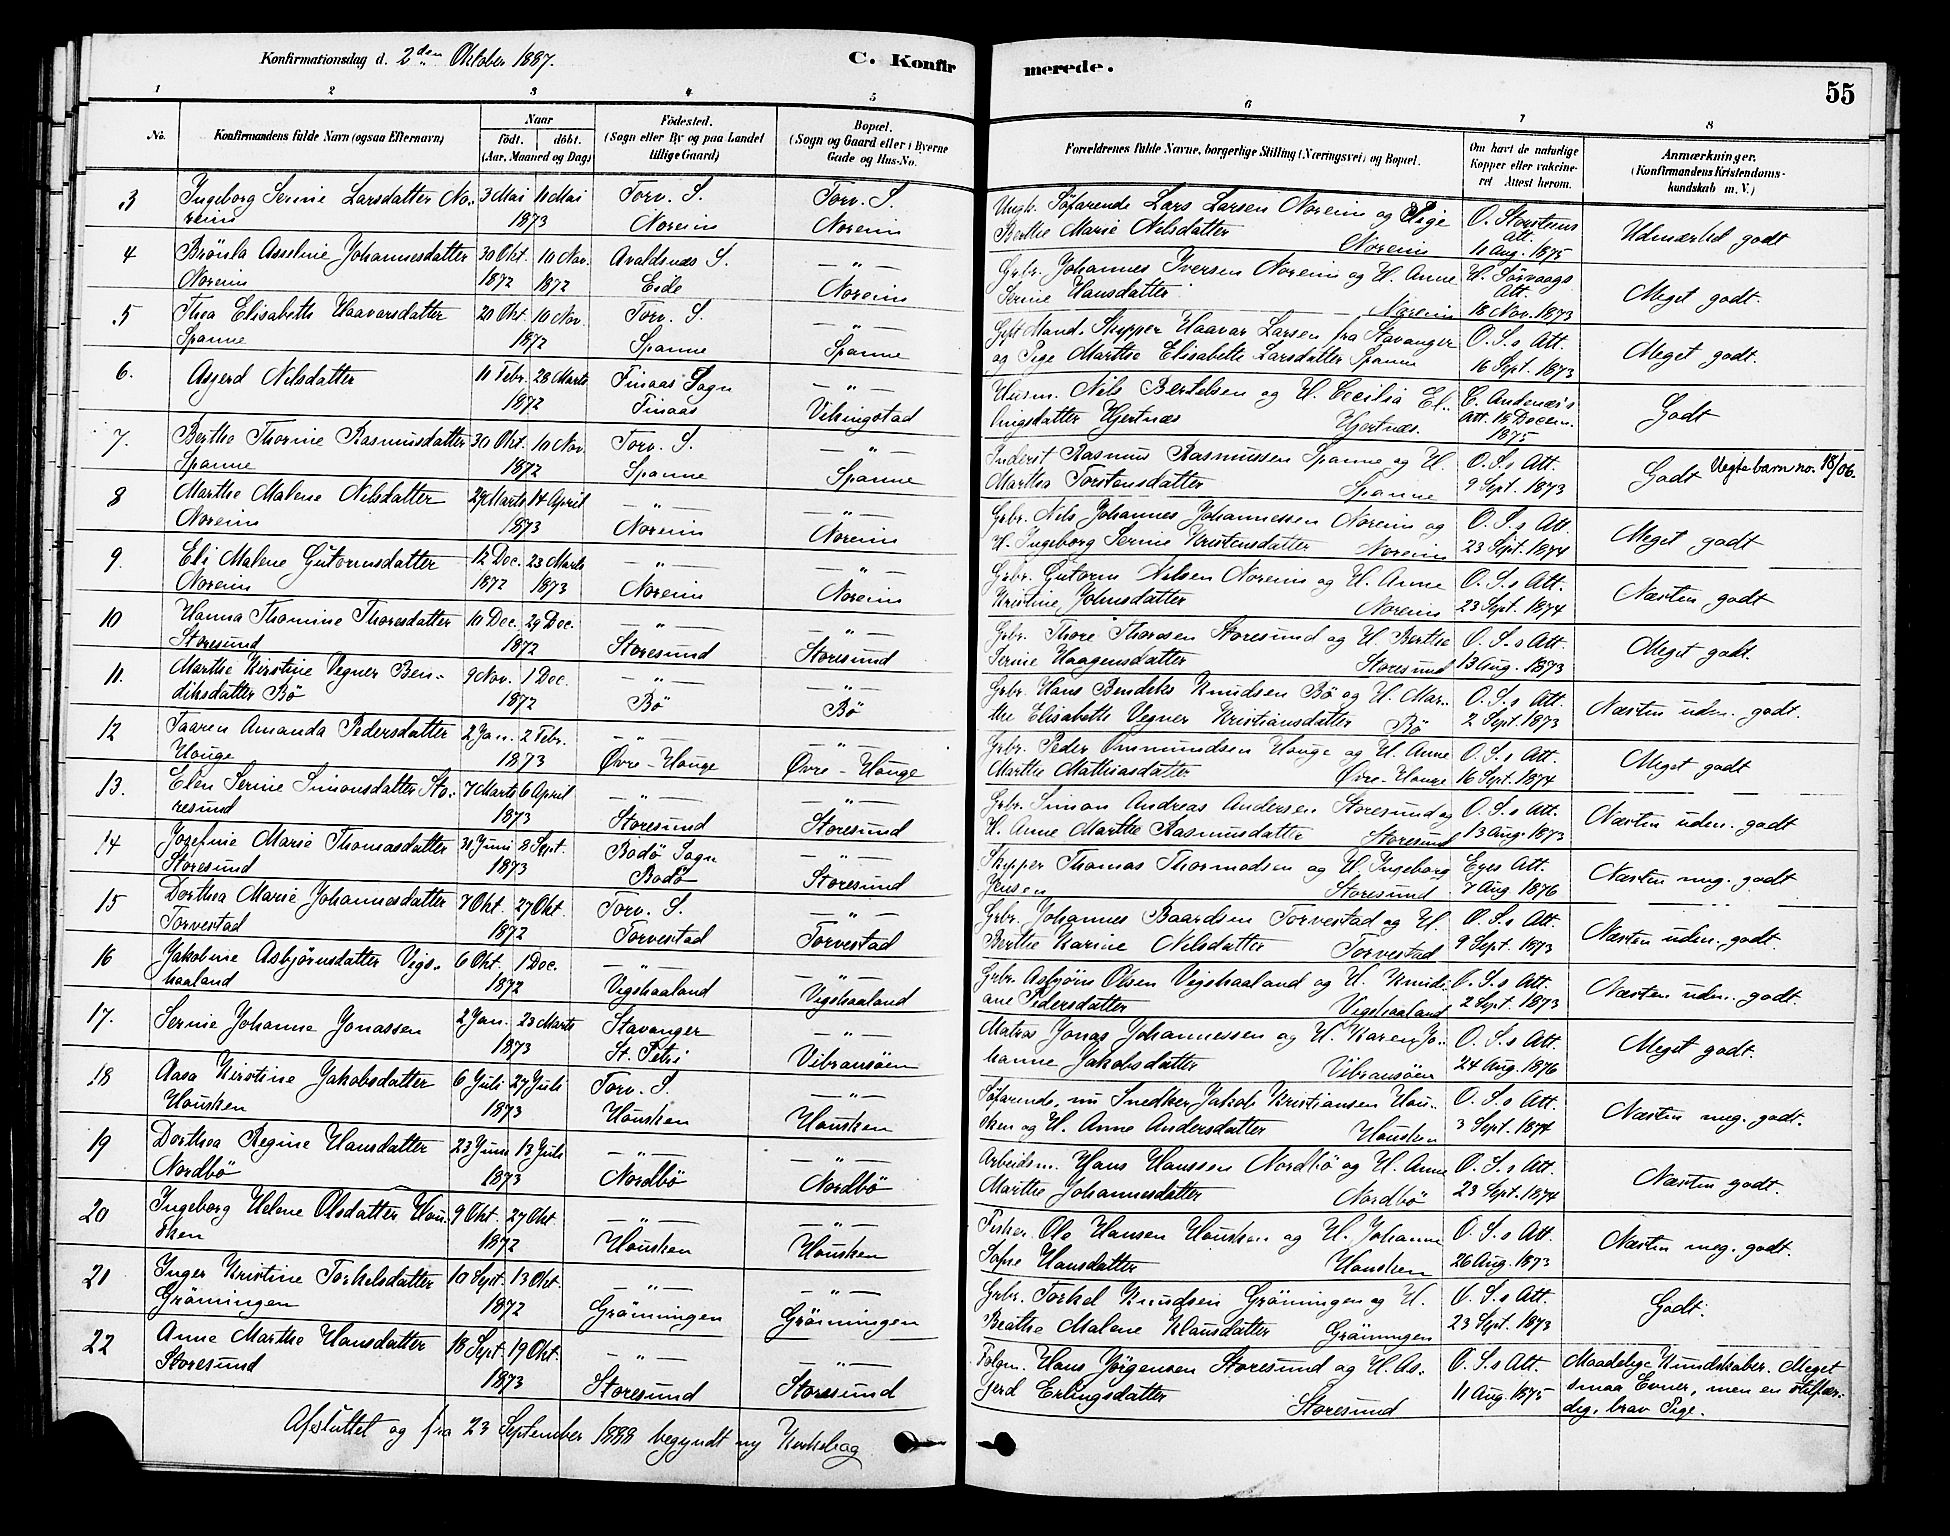 Konfirmationsdag d. 2den Oktober 1887.
C. Konfirmerede.
55
1 2 3 4 5 6 7 8
No.
Konfirmandens fulde Navn (ogsaa Efternavn)
Naar
født. døbt.
(Aar, Maaned og Dag)
Fødested.
(Sogn eller By og paa Landet
tillige Gaard)
Bopæl.
(Sogn og Gaard eller i Byerne
Gade og Hus-No.
Forældrenes fulde Navne, borgerlige Stilling (Næringsvei) og Bopæl.
Om havt de naturlige
Kopper eller vakcine-
ret Attest herom.
Anmærkninger.
(Konfirmandens Kristendoms-
kundskab m. V.)
3 Ingeborg Serine Larsdatter No- 3 Mai 11 Mai Torv. S. Torv. S. Ungk. Söfarende Lars Larsen Noreim og Pige O. Storstens Udmærket godt
reim 1873 Noreim Noreim Berthe Marie Nilsdatter Noreim Att. 11 Aug. 1875
4 Brönla Asseline Johannesdatter 30 Okt. 10 Nov. Avaldsnæs S. — " — Grbr. Johannes Iversen Noreim og H. Anne H. Sörvaags Meget godt.
Noreim 1872 1872 Eide Noreim Serine Hansdatter Noreim Att. 18 Nov. 1873
5 Thea Elisabeth Haavarsdatter 20 Okt. 10 Nov. Torv. S. — " — Gift Mand. Skipper Haavar Larsen fra Stavanger O. S.s Att. Meget godt.
Spanne 1872 Spanne Spanne og Pige Marthe Elisabette Larsdatter Spanne 16 Sept. 1873
6. Asgerd Nilsdatter 11 Febr. 28 Marts Finaas Sogn — " — Husm. Nils Bertelsen og H. Cecilia El- C. Andenæs's Godt
1872 Finaas Vikingstad lingsdatter Hjertnæs Hjertnæs. Att. 15 Decem. 1875
7. Berthe Thorine Rasmusdatter 30 Okt. 10 Nov. Torv. S. — " — Inderst Rasmus Rasmussen Spanne og H. O. S.s Att. Godt Uegte barn no. 18/06.
Spanne 1872 Spanne Spanne Martha Torstensdatter Spanne 9 Sept. 1873
8 Marthe Malene Nilsdatter 29 Marts 14 April — " — — " — Grbr. Nils Johannes Johannessen Noreim og O. S.s Att. Meget godt
Noreim 1873 Noreim Noreim H. Ingeborg Serine Kristensdatter Noreim 23 Sept. 1874
9. Eli Malene Gutormsdatter 12 Dec. 23 Marts — " — — " — Grbr. Gutorm Nilsen Noreim og H. Anne O. S.s Att. Næsten godt
Noreim 1872 1873 Noreim Noreim Kristine Johnsdatter Noreim 23 Sept. 1874
10 Hanna Thomine Thoresdatter 10 Dec. 29 Dec. — " — — " — Grbr. Thore Thoresen Storesund og H. Berthe O. S.s Att. Meget godt.
Storesund 1872 Storesund Storesund Serine Haagensdatter Storesund 13 Aug. 1873
11. Marthe Kirstine Vegner Ben- 9 Nov. 1 Dec. — " — — " — Grbr. Hans Bendiks Knudsen Bö og H. Mar- O. S.s Att. Næsten uden. godt.
diksdatter Bö 1872 Bö Bö the Elisabeth Vegner Kristiansdatter Bö 2 Sept 1873
12 Taaren Amanda Pedersdatter 2 Jan. 2 Febr. — " — — " — Grbr. Peder Ommundsen Houge og H. Anne O. S.s Att. Meget godt
Houge 1873 Övre-Houge Övre-Houge Marthe Mathiasdatter Övre-Houge 16 Sept. 1874
13. Elen Serine Simonsdatter Sto- 7 Marts 6 April — " — — " — Grbr. Simon Andreas Andersen Storesund og O. S.s Att. Næsten uden. godt
resund 1873 Storesund Storesund H. Anne Marthe Rasmusdatter Storesund 13 Aug. 1873
14 Josefine Marie Thomasdatter 31 Juni 8 Sept. Bodö Sogn — " — Skipper Thomas Thormodsen og H. Ingeborg Eyes Att. Næsten meg. godt
Storesund 1873 Bodö Storesund Jensen Storesund 7 Aug 1876
15 Dorthea Marie Johannesdatter 7 Okt. 27 Okt. Torv. S. — " — Grbr. Johannes Baardsen Torvestad og H. O. S.s Att. Næsten uden. godt.
Torvestad 1872 Torvestad Torvestad Berthe Karine Nilsdatter Torvestad 9 Sept. 1873
16 Jakobine Asbjörnsdatter Vigs- 6 Okt. 1 Dec. — " — — " — Grbr. Asbjörn Olsen Vigshaaland og H. Knudi- O. S.s Att. Næsten uden. godt.
haaland 1872 Vigshaaland Vigshaaland ane Pedersdatter Vigshaaland 2 Sept. 1873
17. Serine Johanne Jonassen 2 Jan. 23 Marts Stavanger — " — Matros Jonas Johannessen og H. Karen Jo- O. S.s Att. Meget godt.
1873 St. Petri Vibransöen hanne Jakobsdatter Vibransöen 24 Aug. 1876
18 Aasa Kirstine Jakobsdatter 6 Juli 27 Juli Torv. S. — " — Söfarende, nu Snedker Jakob Kristiansen Hou- O. S.s Att. Næsten meg. godt.
Housken 1873 Housken Housken sken og H. Anne Andersdatter Housken 3 Sept. 1874
19 Dorthea Regine Hansdatter 23 Juni 13 Juli — " — — " — Arbeidsm. Hans Hanssen Nordbö og H. Anne O. S.s Att. Næsten godt.
Nordbö 1873 Nordbö Nordbö Marthe Johannesdatter Nordbö 23 Sept. 1874
20 Ingeborg Helene Olsdatter Hou- 9 Okt. 27 Okt. — " — — " — Fisker Ole Hansen Housken og H. Johanne O. S.s Att. Næsten meg. godt.
sken 1872 Housken Housken Sofie Hansdatter Housken 26 Aug. 1873
21 Inger Kristine Torkelsdatter 10 Sept. 13 Okt. — " — — " — Grbr. Torkel Knudsen Grönningen og H. O. S.s Att. Godt.
Grönningen 1872 Grönningen Grönningen Beathe Malene Klausdatter Grönningen 23 Sept. 1873
22 Anne Marthe Hansdatter 18 Sept. 19 Okt. — " — — " — Folgm. Hans Jörgensen Storesund og H. As- O. S.s Att. Maadelige Kundskaber. Meget
Storesund 1873 Storesund Storesund gerd Erlingsdatter Storesund 11 Aug. 1875 smaa Evner, men en stilfær-
dig, brav Pige.
Afsluttet og fra 23 September 1888 begyndt ny Kirkebog